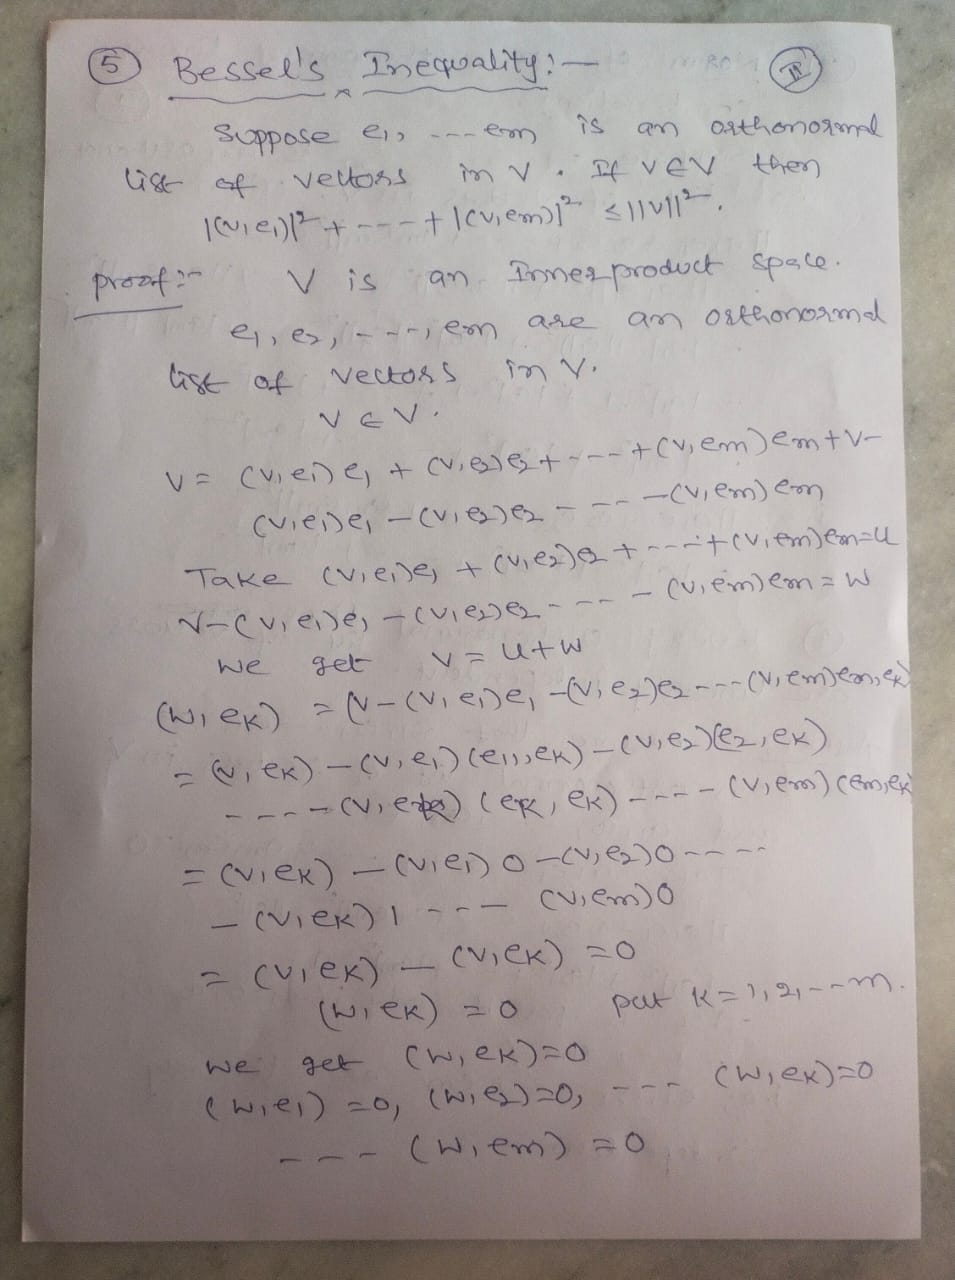 5 Bessel's Inequality :- II
Suppose e1, --- em is an orthonormal
list of vectors in V. If v∈V then
|(v,e1)|² + --- + |(v,em)|² ≤ ||v||².
proof :- V is an Inner product space.
e1, e2, ---, em are an orthonormal
list of vectors in V.
v ∈ V.
v = (v,e1)e1 + (v,e2)e2 + --- + (v,em)em + v-
(v,e1)e1 - (v,e2)e2 - --- - (v,em)em
Take (v,e1)e1 + (v,e2)e2 + --- + (v,em)em = u
v-(v,e1)e1 - (v,e2)e2 - --- - (v,em)em = w
we get v = u+w
(w,ek) = (v-(v,e1)e1 -(v,e2)e2 --- (v,em)em,ek)
= (v,ek) - (v,e1)(e1,,ek) - (v,e2)(e2,ek)
---- - (v,ek) (ek,ek) ---- (v,em)(em,ek)
= (v,ek) - (v,e1)0 - (v,e2)0 -----
- (v,ek)1 --- (v,em)0
= (v,ek) - (v,ek) = 0
(w,ek) = 0 put k = 1,2,--m.
we get (w,ek)=0
(w,e1) = 0, (w,e2)=0, --- (w,ek)=0
--- (w,em) = 0